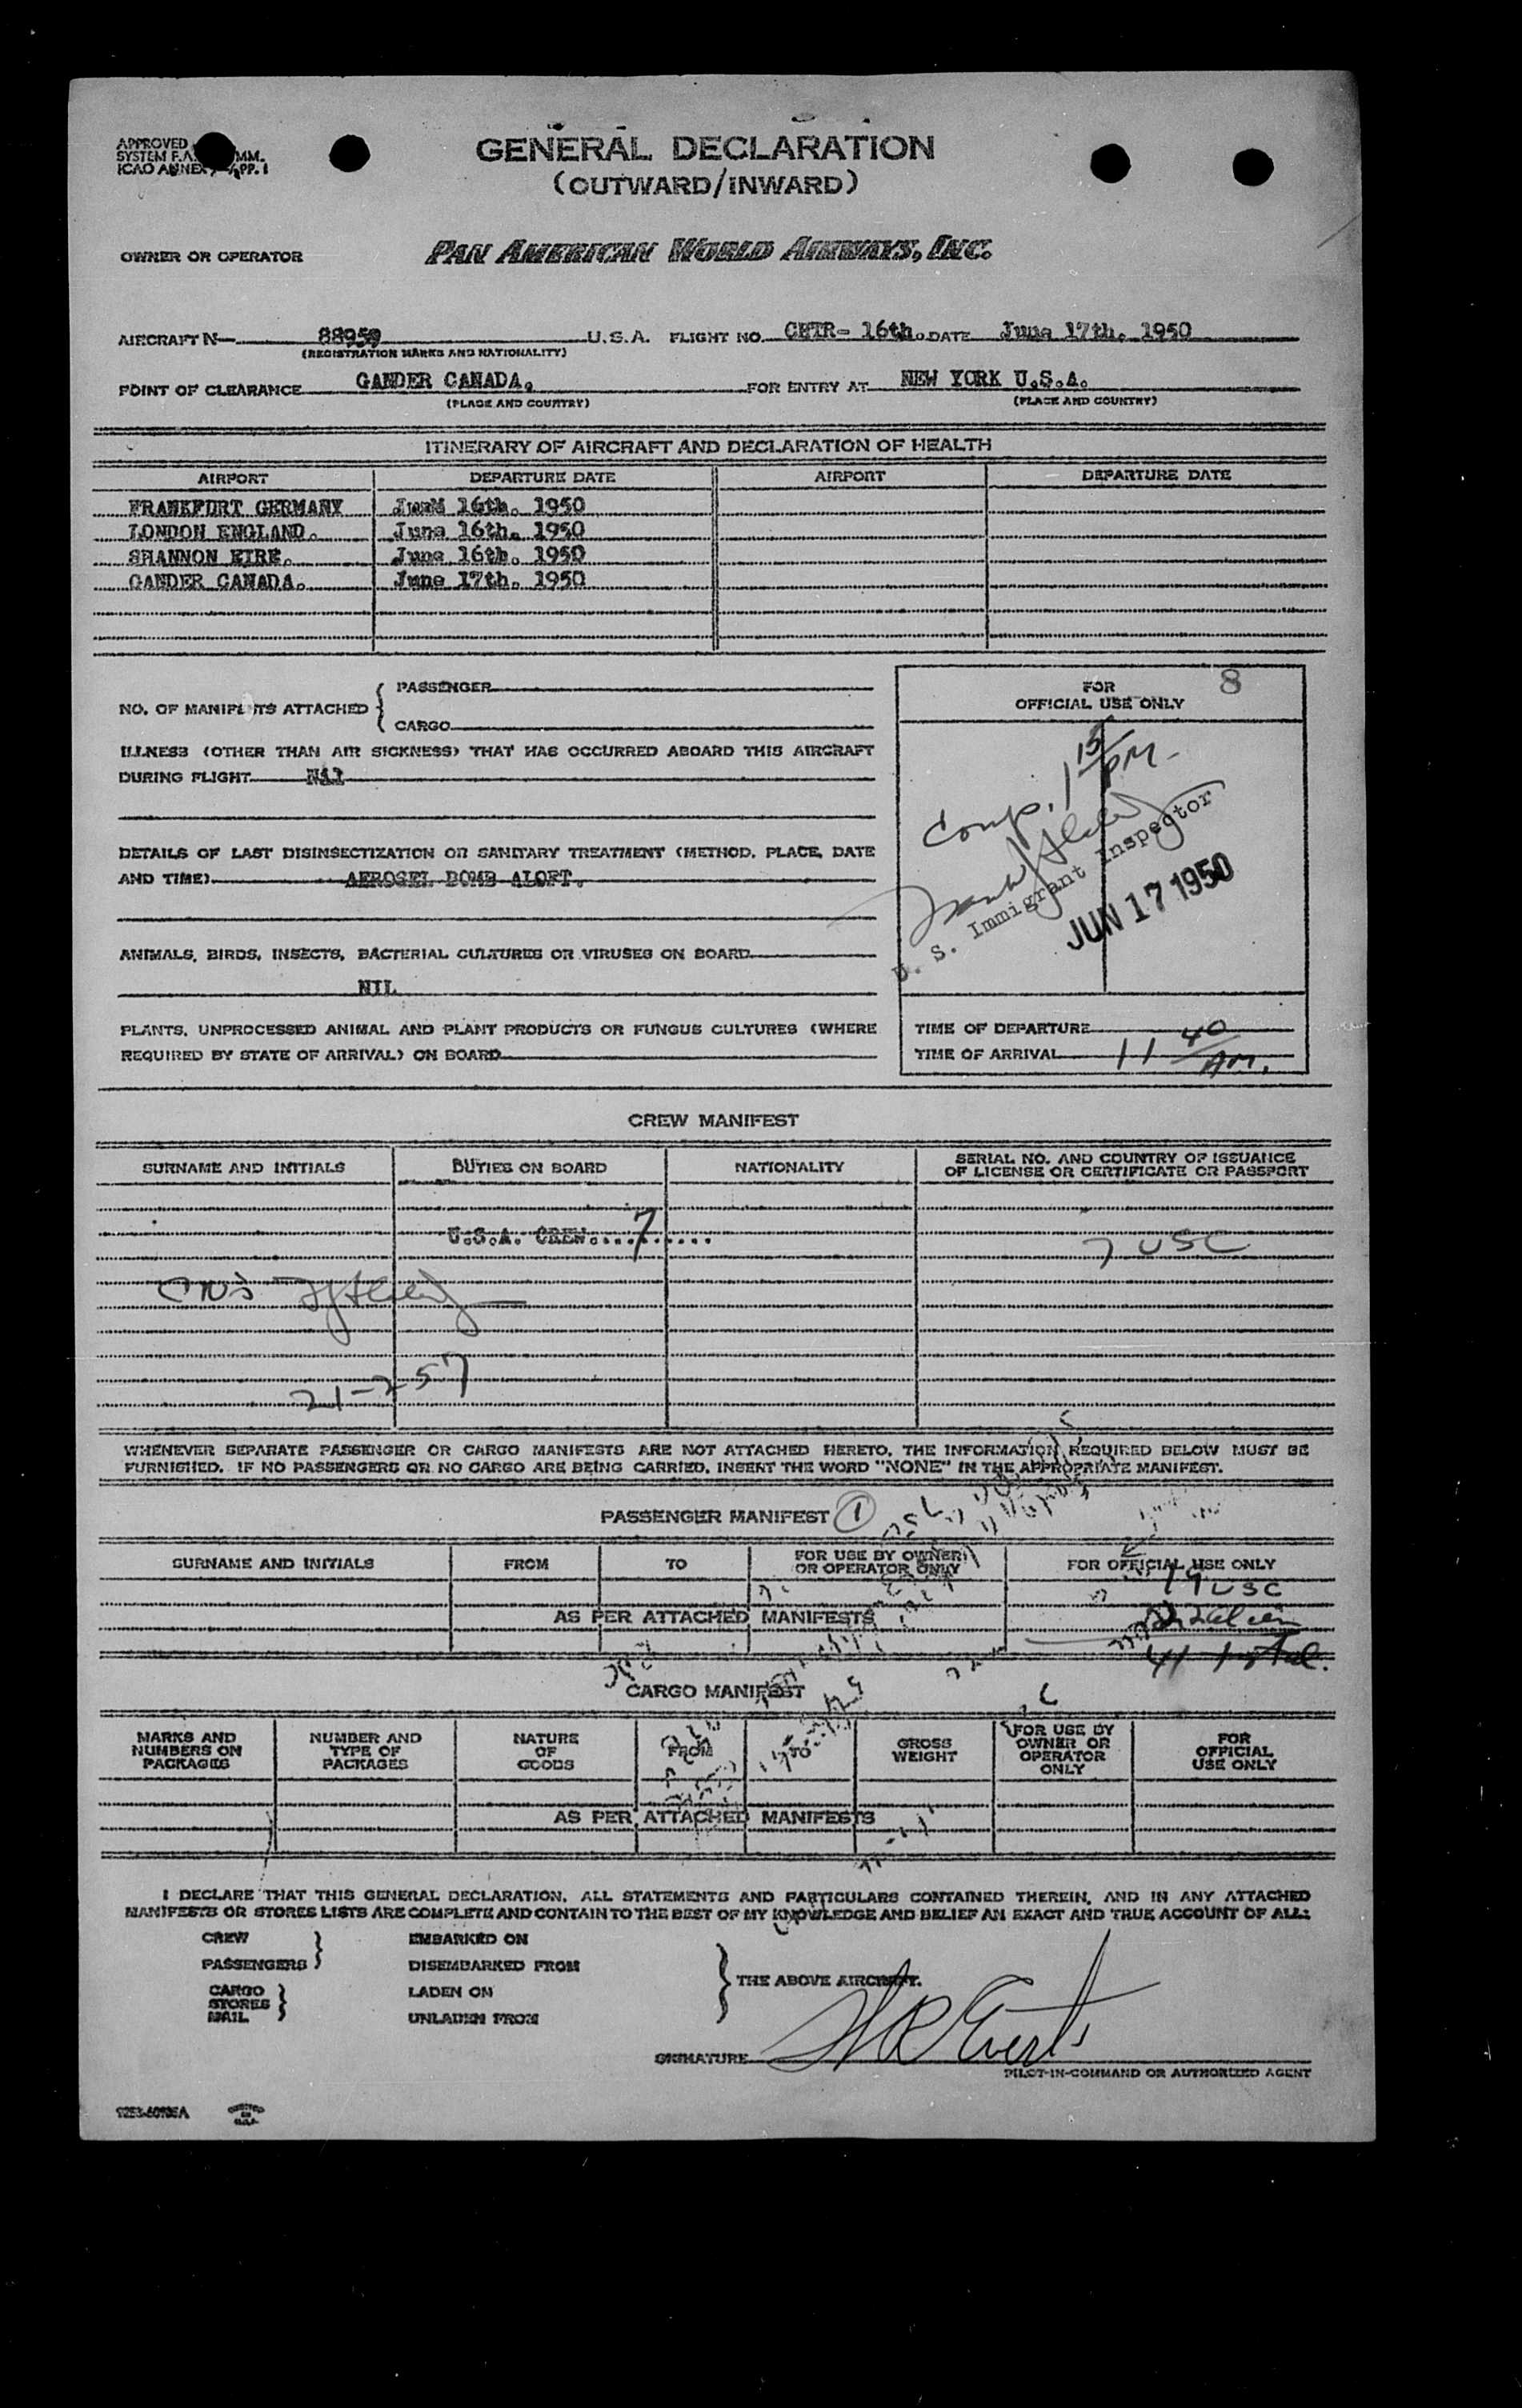 APPROVED
SYSTEM F.A. MM.
ICAO ANNEX APP. 1
GENERAL DECLARATION
(OUTWARD/INWARD)
OWNER OR OPERATOR PAN AMERICAN WORLD AIRWAYS, INC.
AIRCRAFT N— 88959 U.S.A. FLIGHT NO. CHTR- 16th. DATE June 17th. 1950
(REGISTRATION MARKS AND NATIONALITY)
POINT OF CLEARANCE GANDER CANADA. FOR ENTRY AT NEW YORK U.S.A.
(PLACE AND COUNTRY) (PLACE AND COUNTRY)
ITINERARY OF AIRCRAFT AND DECLARATION OF HEALTH
AIRPORT DEPARTURE DATE AIRPORT DEPARTURE DATE
FRANKFURT GERMANY June 16th. 1950
LONDON ENGLAND. June 16th. 1950
SHANNON EIRE. June 16th. 1950
GANDER CANADA. June 17th. 1950
NO. OF MANIFESTS ATTACHED { PASSENGER
CARGO
ILLNESS (OTHER THAN AIR SICKNESS) THAT HAS OCCURRED ABOARD THIS AIRCRAFT
DURING FLIGHT NIL
DETAILS OF LAST DISINSECTIZATION OR SANITARY TREATMENT (METHOD, PLACE, DATE
AND TIME) AEROSEL BOMB ALOFT.
ANIMALS, BIRDS, INSECTS, BACTERIAL CULTURES OR VIRUSES ON BOARD
NIL
PLANTS, UNPROCESSED ANIMAL AND PLANT PRODUCTS OR FUNGUS CULTURES (WHERE
REQUIRED BY STATE OF ARRIVAL) ON BOARD
FOR 8
OFFICIAL USE ONLY
Comp. 1 15/PM
U. S. Immigrant Inspector
JUN 17 1950
TIME OF DEPARTURE
TIME OF ARRIVAL 11 40/AM.
CREW MANIFEST
SURNAME AND INITIALS DUTIES ON BOARD NATIONALITY SERIAL NO. AND COUNTRY OF ISSUANCE
OF LICENSE OR CERTIFICATE OR PASSPORT
U.S.A. CREW....7..... 7 USC
21-257
WHENEVER SEPARATE PASSENGER OR CARGO MANIFESTS ARE NOT ATTACHED HERETO, THE INFORMATION REQUIRED BELOW MUST BE
FURNISHED. IF NO PASSENGERS OR NO CARGO ARE BEING CARRIED, INSERT THE WORD "NONE" IN THE APPROPRIATE MANIFEST.
PASSENGER MANIFEST 1
SURNAME AND INITIALS FROM TO FOR USE BY OWNER OR OPERATOR ONLY FOR OFFICIAL USE ONLY
19 USC
AS PER ATTACHED MANIFESTS
41 total.
CARGO MANIFEST
MARKS AND NUMBERS ON PACKAGES NUMBER AND TYPE OF PACKAGES NATURE OF GOODS FROM TO GROSS WEIGHT FOR USE BY OWNER OR OPERATOR ONLY FOR OFFICIAL USE ONLY
AS PER ATTACHED MANIFESTS
I DECLARE THAT THIS GENERAL DECLARATION, ALL STATEMENTS AND PARTICULARS CONTAINED THEREIN, AND IN ANY ATTACHED
MANIFESTS OR STORES LISTS ARE COMPLETE AND CONTAIN TO THE BEST OF MY KNOWLEDGE AND BELIEF AN EXACT AND TRUE ACCOUNT OF ALL:
CREW EMBARKED ON
PASSENGERS DISEMBARKED FROM
THE ABOVE AIRCRAFT.
CARGO LADEN ON
STORES
MAIL UNLADEN FROM
SIGNATURE W R Everts
PILOT-IN-COMMAND OR AUTHORIZED AGENT